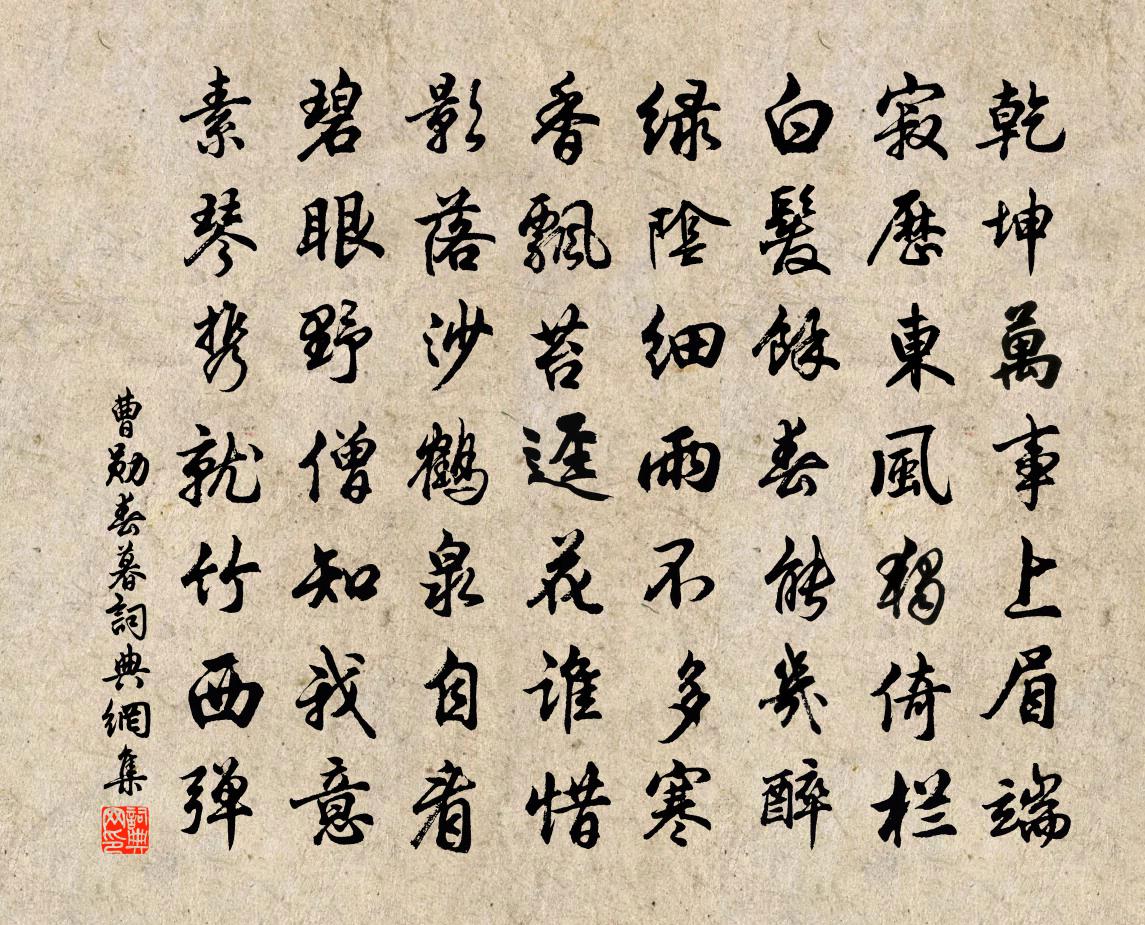 乾坤萬事上眉端
寂歷東風獨倚栏
白髮餘春能幾醉
绿陰细雨不多寒
香飄苔逕花誰惜
影落沙鶴泉自看
碧眼野僧知我意
素琴携就竹西弹
曹勛春暮詞典網集
詞典網印